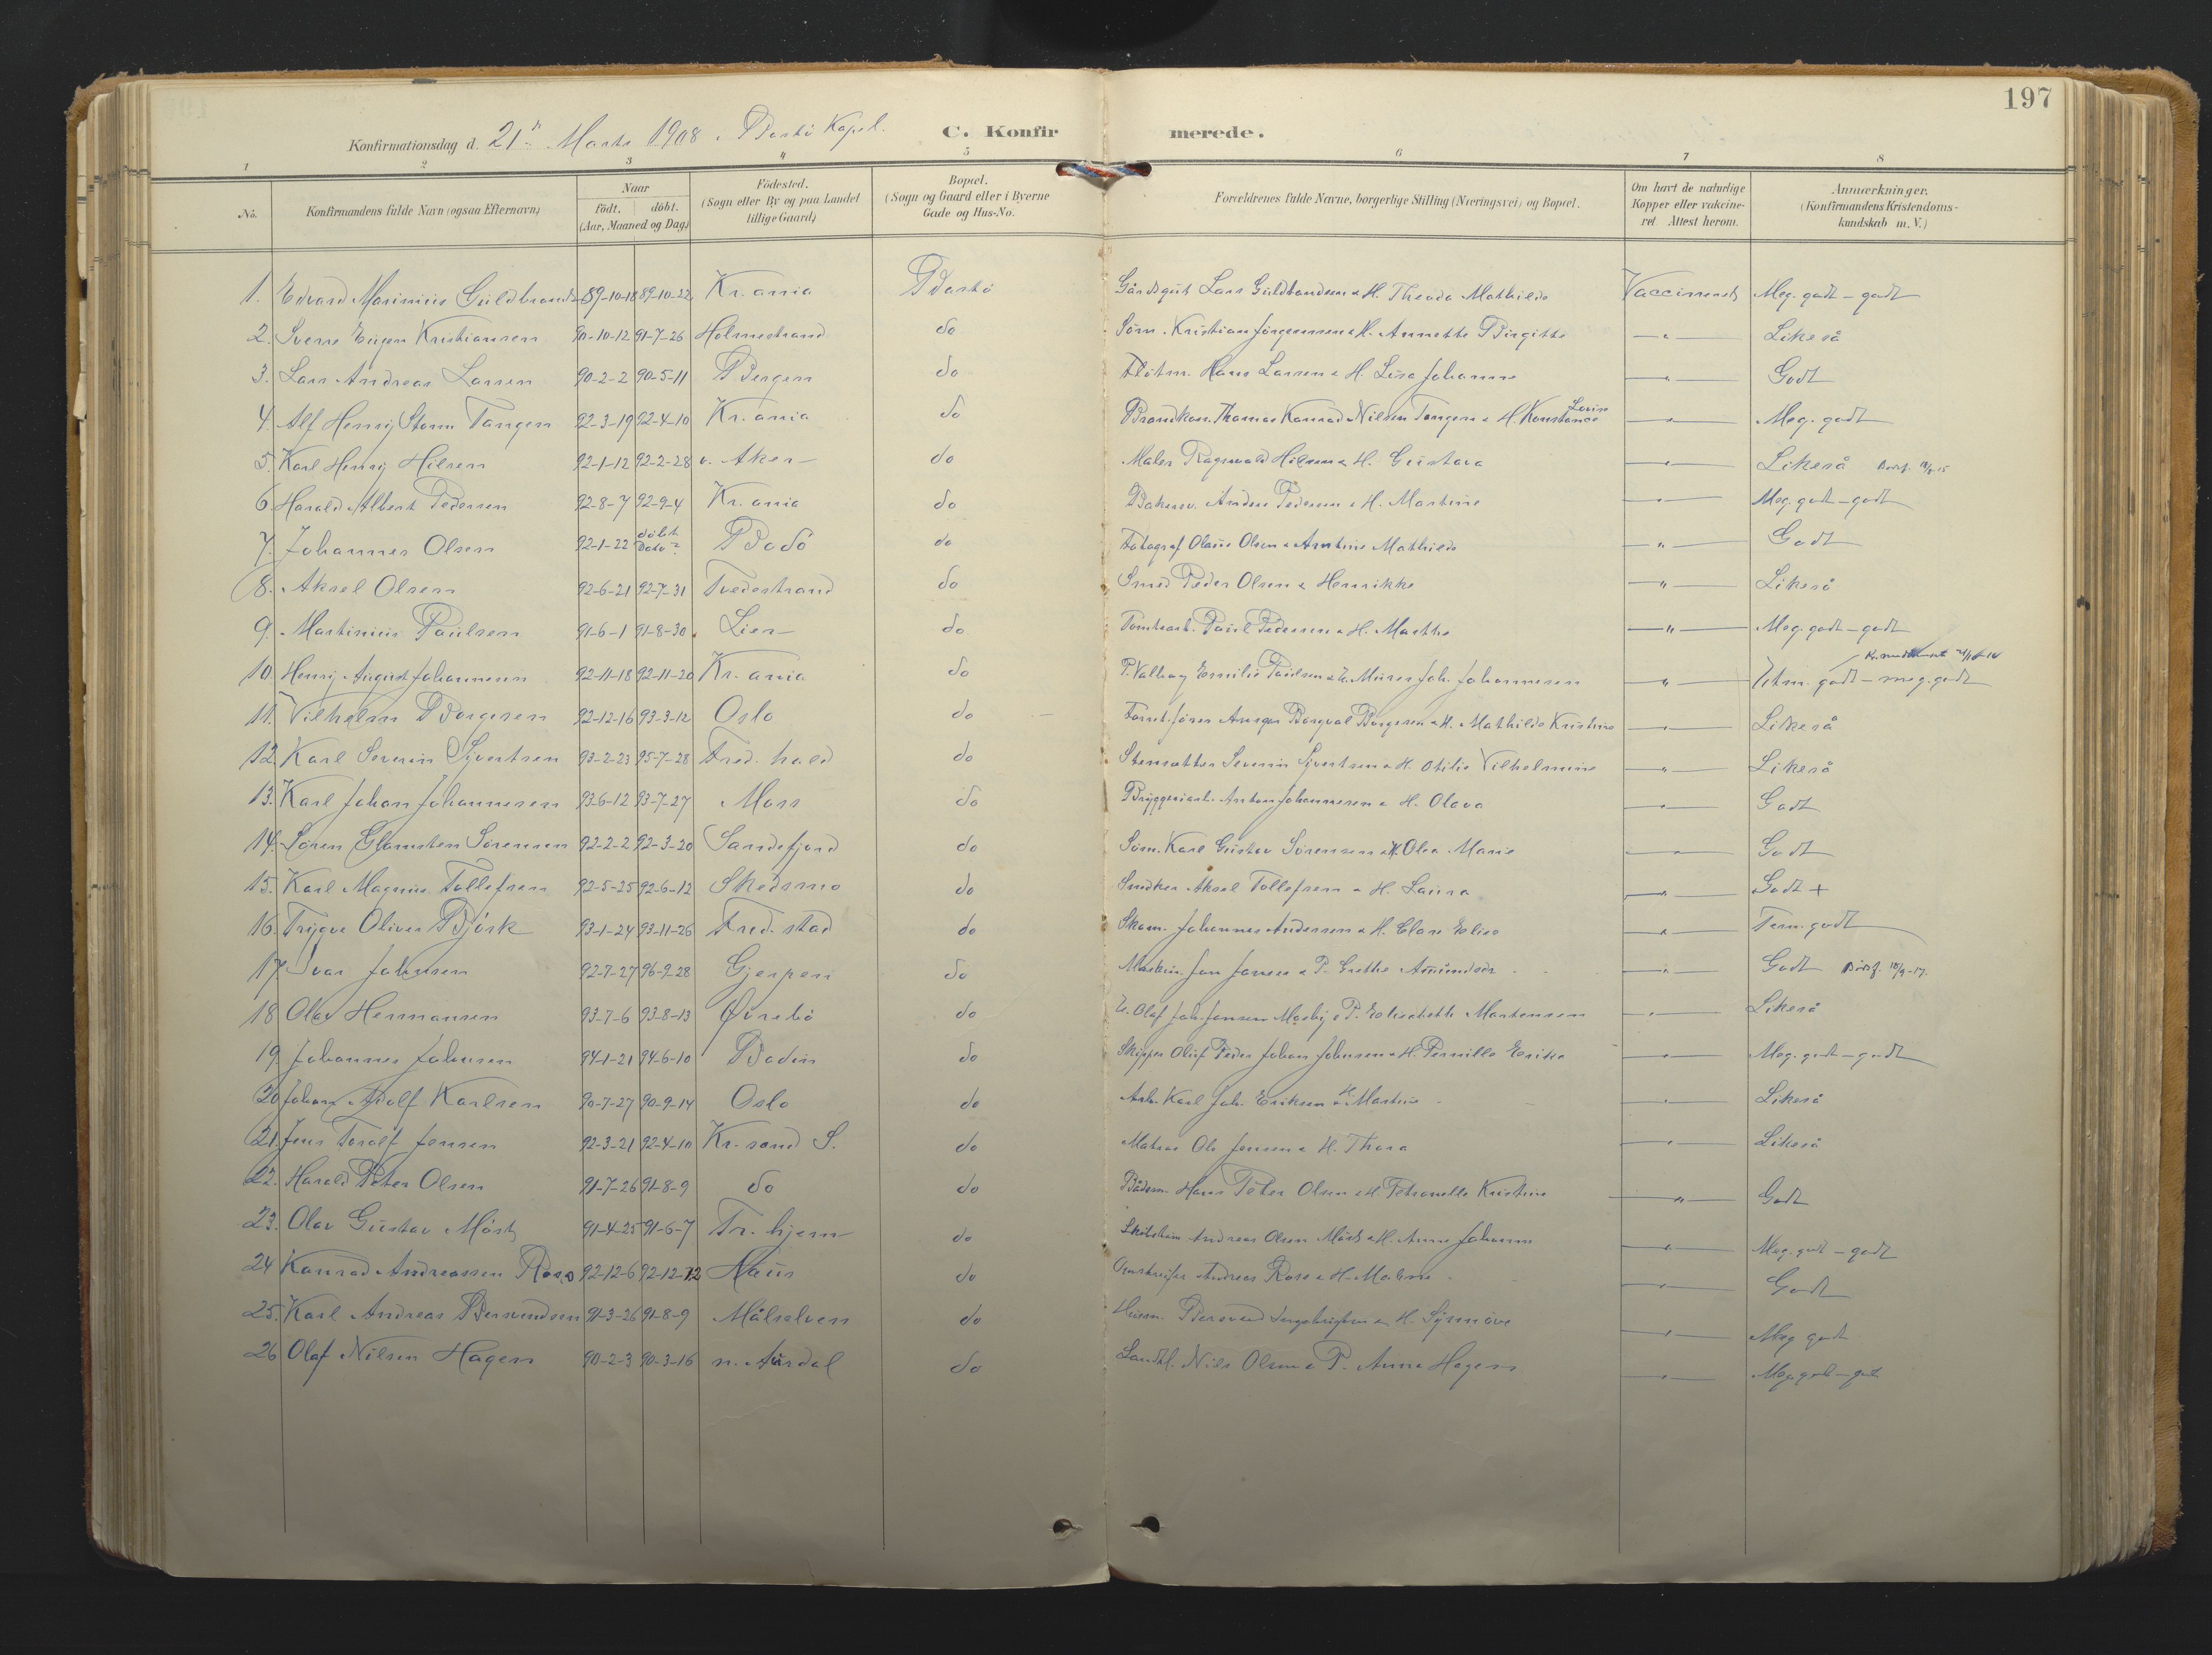 197
Konfirmationsdag d. 21de Marts 1908 i Bastö Kapel. C. Konfirmerede.
1 2 3 4 5 6 7 8
No. Konfirmandens fulde Navn (ogsaa Efternavn) Naar födt. döbt. (Aar, Maaned og Dag) Födested. (Sogn eller By og paa Landet tillige Gaard) Bopæl. (Sogn og Gaard eller i Byerne Gade og Hus-No. Forældrenes fulde Navne, borgerlige Stilling (Næringsvei) og Bopæl. Om havt de naturlige Kopper eller vakcineret. Attest herom. Anmærkninger. (Konfirmandens Kristendomskundskab m. V.)
1. Edvard Marinius Guldbrands. 89-10-18 89-10-22 Kr.ania Bastö Gårdsgut Lars Guldbrandsen & H. Theoda Mathilde Vaccineret Meg. godt - godt
2. Sverre Eugen Kristiansen 90-10-12 91-7-26 Holmestrand do Söm. Kristian Jörgensen & H. Annette Birgitte -"- Likeså
3. Lars Andreas Larsen 90-2-2 90-5-11 Bergen do Flötm. Hans Larsen & H. Lisa Johanne -"- Godt
4. Alf Henrij Storm Tangen 92-3-19 92-4-10 Kr.ania do Brandkon. Thomas Konrad Nilsen Tangen & H. Konstance Lovise -"- Meg. godt
5. Karl Henrij Hilsen 92-1-12 92-2-28 v. Aker do Maler Ragnvald Hilsen & H. Gustava -"- Likeså
6. Harald Albert Pedersen 92-8-7 92-9-4 Kr.ania do Bakersv. Anders Pedersen & H. Martine -"- Meg. godt - godt
7. Johannes Olsen 92-1-22 döbt Dato? Bodö do Fotograf Olaus Olsen & Antine Mathilde -"- Godt
8. Aksel Olsen 92-6-21 92-7-31 Tvedestrand do Smed Peder Olsen & Henrikke -"- Likeså
9. Martinius Paulsen 91-6-1 91-8-30 Lier do Tomtearb. Paul Pedersen & H. Marthe -"- Meg. godt - godt
10. Henrij August Johannesen 92-11-18 92-11-20 Kr.ania do P. Valborg Emilie Paulsen & U. Murer Joh. Johannesen -"- Utm. godt - meg. godt
11. Vilhelm Borgersen 92-12-16 93-3-12 Oslo do Ansgar Borgersen & H. Mathilde Kristine -"- Likeså
12. Karl Severin Sivertsen 93-2-23 95-7-28 Fred.hald do Stensætter Severin Sivertsen & H. Otilie Vilhelmine -"- Likeså
13. Karl Johan Johannesen 93-6-12 93-7-27 Moss do Bryggeriarb. Anton Johannesen & H. Olava -"- Godt
14. Sören Sörensen 92-2-2 92-3-20 Sandefjord do Söm. Karl Gustav Sörensen & H. Olea Marie -"- Godt
15. Karl Magnus Tollefsen 92-5-25 92-6-12 Skedsmo do Snedker Aksel Tollefsen & H. Laura -"- Godt +
16. Trygve Oliver Björk 93-1-24 93-11-26 Fred.stad do Skom. Johannes Andersen & H. Clara Elise -"- Tem. godt
17. Ivar Johnsen 92-7-27 96-9-28 Gjerpen do Maskin. Jan Jansen & P. Grethe Amundsdr. -"- Godt
18 Olav Hermansen 93-7-6 93-8-13 Övrebö do U. Olaf Joh. Jensen Mosby & P. Elisabeth Martensen -"- Likeså
19. Johannes Johnsen 94-1-21 94-6-10 Bodin do Skipper Oluf Peder Johan Johnsen & H. Pernille Erika -"- Meg. godt - godt
20. Johan Adolf Karlsen 90-7-27 90-9-14 Oslo do Arb. Karl Joh. Eriksen & H. Martine -"- Likeså
21. Jens Toralf Jensen 92-3-21 92-4-10 Kr.sand S. do Matros Ole Jensen & H. Thora -"- Likeså
22. Harald Peter Olsen 91-7-26 91-8-9 do do Bådsm. Hans Peter Olsen & H. Petronelle Kristine -"- Godt
23. Olav Gustav Möst 91-4-25 91-6-7 Tr.hjem do Andreas Olsen Möst & H. Anne Johanne -"- Meg. godt - godt
24 Konrad Andreassen Rose 92-12-6 92-12-12 Haus do Andreas Rose & H. Malene -"- Godt
25. Karl Andreas Bersvendsen 91-3-26 91-8-9 Målselven do Husm. Bersvend Ingebrigtsen & H. Synnöve -"- Meg. godt
26 Olaf Nilsen Hagen 90-2-3 90-3-16 n. Aurdal do Landh. Nils Olsen & P. Anne Hagen -"- Meg. godt - godt